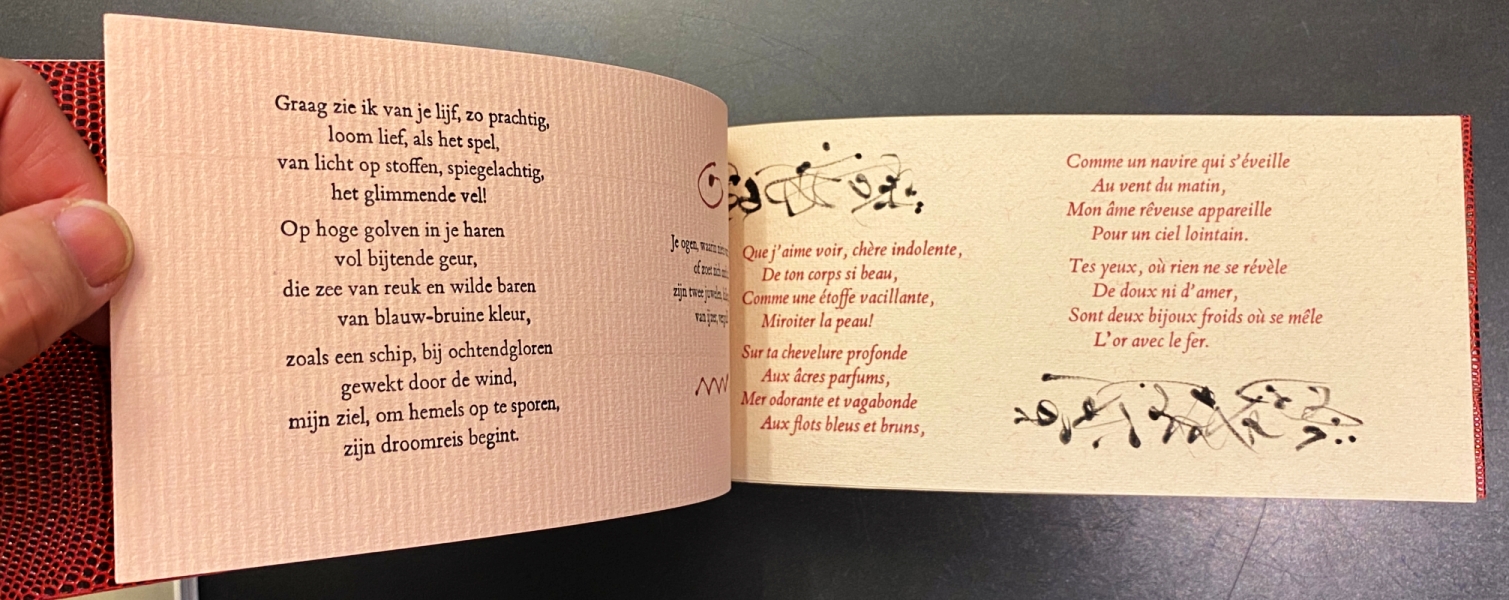 Graag zie ik van je lijf, zo prachtig,
loom lief, als het spel,
van licht op stoffen, spiegelachtig,
het glimmende vel!
Op hoge golven in je haren
vol bijtende geur,
die zee van reuk en wilde baren
van blauw-bruine kleur,
zoals een schip, bij ochtendgloren
gewekt door de wind,
mijn ziel, om hemels op te sporen,
zijn droomreis begint.
Je ogen, waarin
of zoet
zijn twee
van ijzer,
Que j'aime voir, chère indolente,
De ton corps si beau,
Comme une étoffe vacillante,
Miroiter la peau!
Sur ta chevelure profonde
Aux âcres parfums,
Mer odorante et vagabonde
Aux flots bleus et bruns,
Comme un navire qui s'éveille
Au vent du matin,
Mon âme rêveuse appareille
Pour un ciel lointain.
Tes yeux, où rien ne se révèle
De doux ni d'amer,
Sont deux bijoux froids où se mêle
L'or avec le fer.